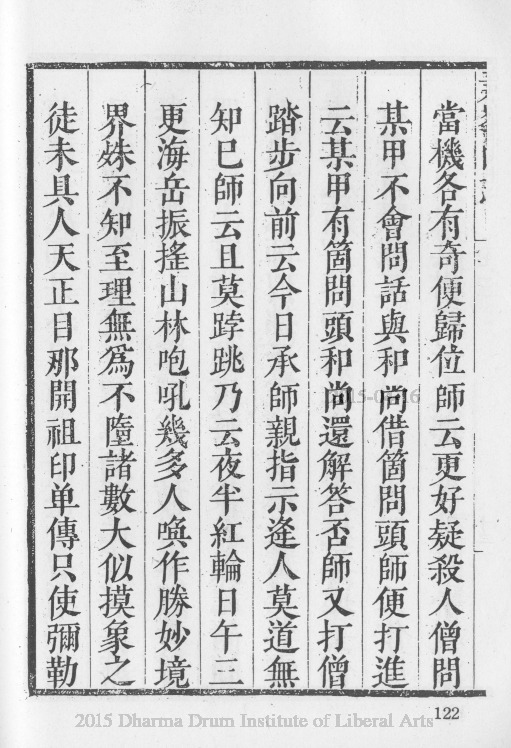 當機各有奇便歸位師云更好疑殺人僧問
某甲不會問話與和尚借箇問頭師便打進
云某甲有箇問頭和尚還解答否師又打僧
踏步向前云今日承師親指示逢人莫道無
知已師云且莫踍跳乃云夜半紅輪日午三
更海岳振搖山林咆吼幾多人喚作勝妙境
界姝不知至理無為不墮諸數大似摸象之
徒未具人天正目那開祖印单傳只使彌勒
122
2015 Dharma Drum Institute of Liberal Arts